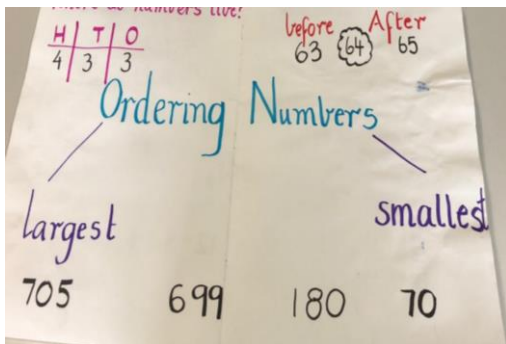 numbers live!
H T O
4 3 3
before After
63 64 65
Ordering Numbers
largest
smallest
705 699 180 70